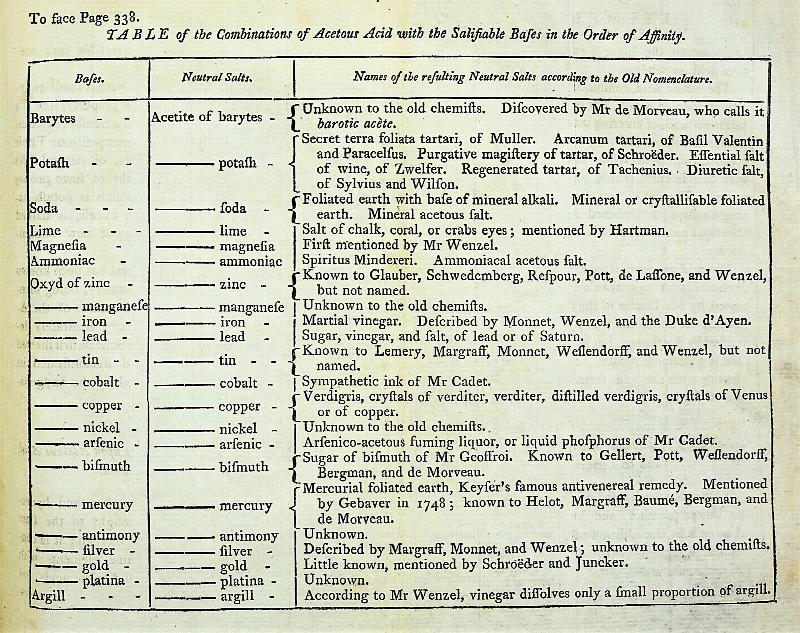 To face Page 338.
TABLE of the Combinations of Acetous Acid with the Salifiable Baſes in the Order of Affinity.
Baſes. Neutral Salts. Names of the reſulting Neutral Salts according to the Old Nomenclature.
Barytes - - Acetite of barytes - Unknown to the old chemiſts. Diſcovered by Mr de Morveau, who calls it
barotic acète.
Potaſh - - —— potaſh - Secret terra foliata tartari, of Muller. Arcanum tartari, of Baſil Valentin
and Paracelſus. Purgative magiſtery of tartar, of Schroëder. Eſſential ſalt
of wine, of Zwelfer. Regenerated tartar, of Tachenius. Diuretic ſalt,
of Sylvius and Wilſon.
Soda - - —— ſoda - Foliated earth with baſe of mineral alkali. Mineral or cryſtalliſable foliated
earth. Mineral acetous ſalt.
Lime - - - —— lime - Salt of chalk, coral, or crabs eyes; mentioned by Hartman.
Magneſia - —— magneſia Firſt mentioned by Mr Wenzel.
Ammoniac - —— ammoniac Spiritus Mindereri. Ammoniacal acetous ſalt.
Oxyd of zinc - —— zinc - Known to Glauber, Schwedemberg, Reſpour, Pott, de Laſſone, and Wenzel,
but not named.
—— manganeſe —— manganeſe Unknown to the old chemiſts.
—— iron - —— iron - Martial vinegar. Deſcribed by Monnet, Wenzel, and the Duke d'Ayen.
—— lead - —— lead - Sugar, vinegar, and ſalt, of lead or of Saturn.
—— tin - - —— tin - - Known to Lemery, Margraff, Monnet, Weſlendorff, and Wenzel, but not
named.
—— cobalt - —— cobalt - Sympathetic ink of Mr Cadet.
—— copper - —— copper - Verdigris, cryſtals of verditer, verditer, diſtilled verdigris, cryſtals of Venus
or of copper.
—— nickel - —— nickel - Unknown to the old chemiſts.
—— arſenic - —— arſenic - Arſenico-acetous fuming liquor, or liquid phoſphorus of Mr Cadet.
—— biſmuth —— biſmuth Sugar of biſmuth of Mr Geoffroi. Known to Gellert, Pott, Weſlendorff,
Bergman, and de Morveau.
—— mercury —— mercury Mercurial foliated earth, Keyſer's famous antivenereal remedy. Mentioned
by Gebaver in 1748; known to Helot, Margraff, Baumé, Bergman, and
de Morveau.
—— antimony —— antimony Unknown.
—— ſilver - —— ſilver - Deſcribed by Margraff, Monnet, and Wenzel; unknown to the old chemiſts.
—— gold - —— gold - Little known, mentioned by Schroëder and Juncker.
—— platina - —— platina - Unknown.
Argill - - - —— argill - According to Mr Wenzel, vinegar diſſolves only a ſmall proportion of argill.